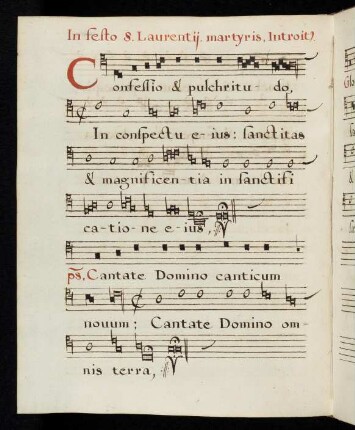 In festo S. Laurentij martyris, Introitꝰ
Confessio & pulchritu- do,
In conspectu e- ius: sanctitas
& magnificen- tia in sanctifi
ca- tio- ne e- ius,
ps. Cantate Domino canticum
nouum: Cantate Domino om-
nis terra,